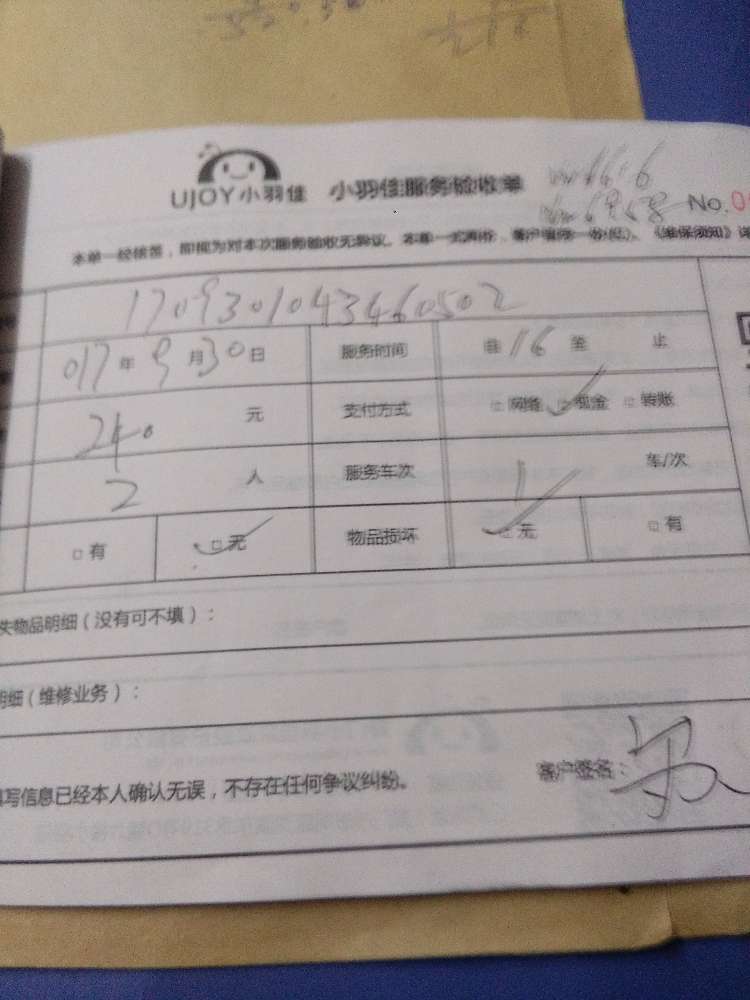 UJOY小羽佳 小羽佳服务验收单 No.0
本单一经核签，即视为对本次服务验收无异议。本单一式两份，客户填第一份
《维保须知》详
1709301043460502
017年9月30日 服务时间 自16至 止
240元 支付方式 □网络 □现金 □转账
2人 服务车次 1车/次
□有 □无 物品损坏 □无 □有
失物品明细（没有可不填）：
明细（维修业务）：
填写信息已经本人确认无误，不存在任何争议纠纷。 客户签名：